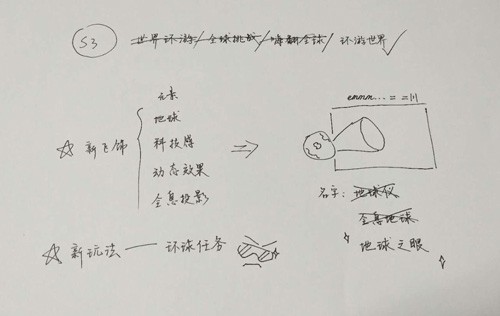 S3 世界环游/全球挑战/嗨翻全球/环游世界
元素
地球
新飞饰 科技感
动态效果
全息投影
emmm...==川
名字：地球仪
全息地球
地球之眼
新玩法——环球任务